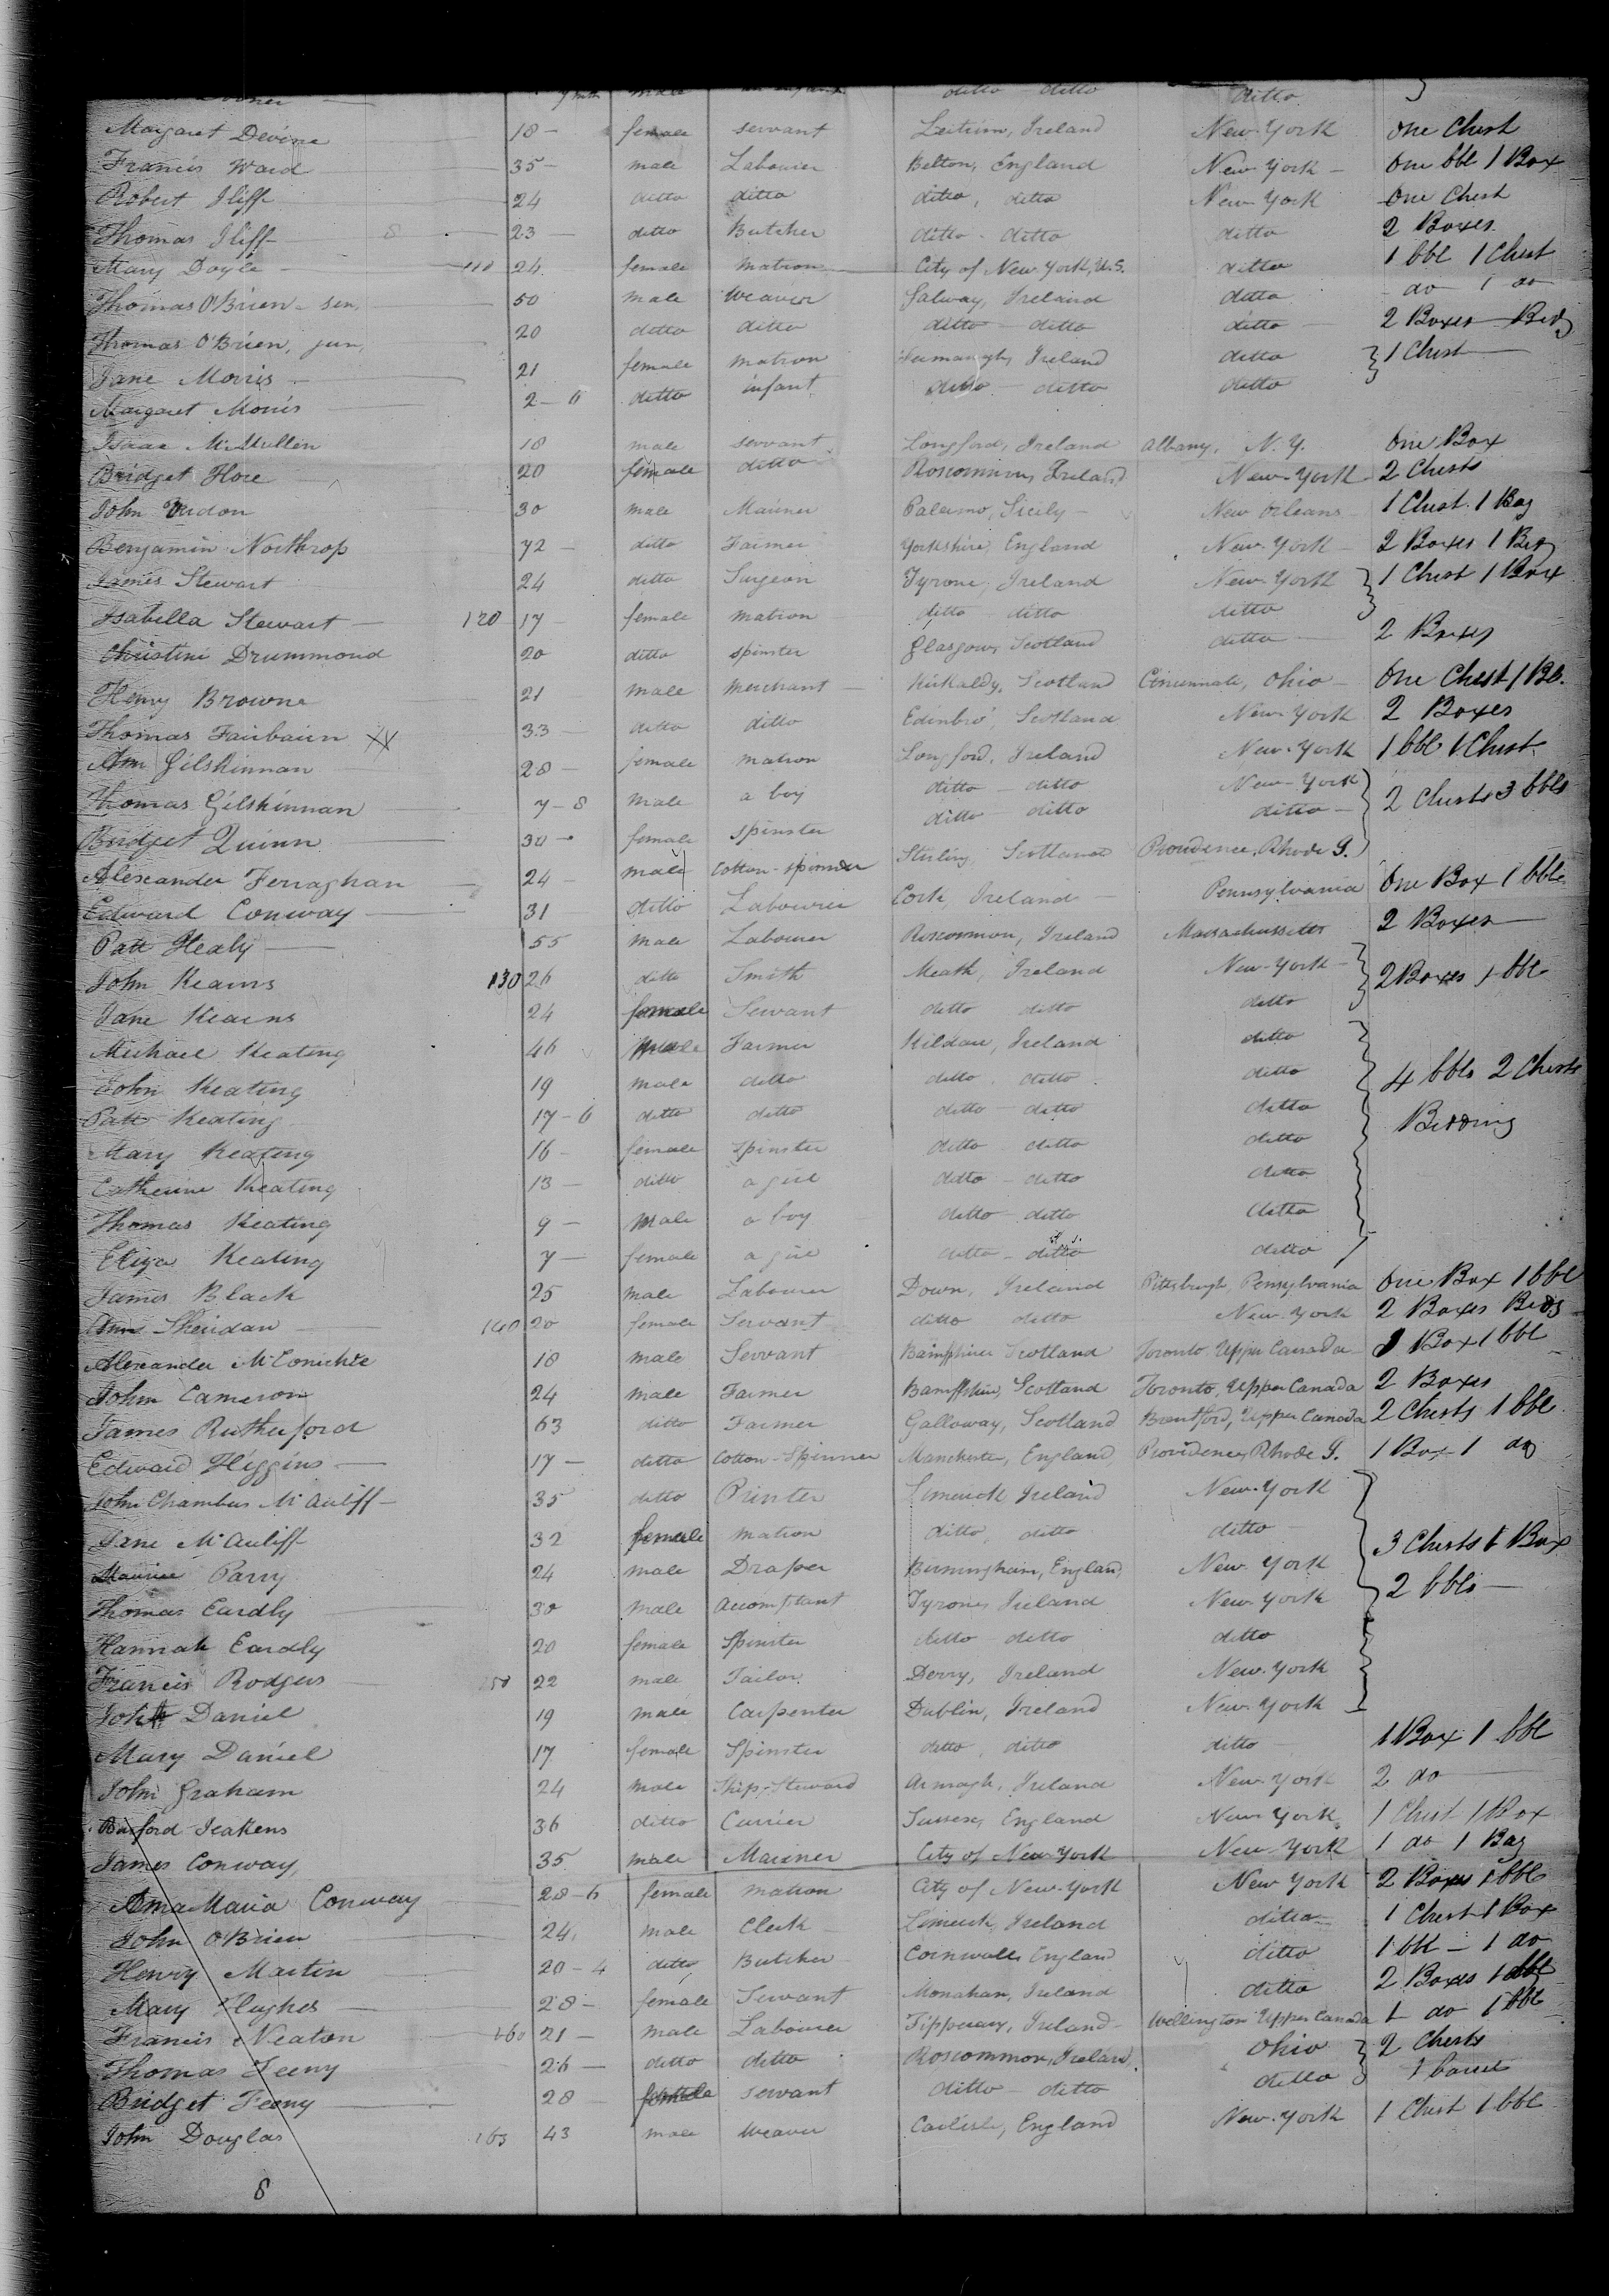 7 mth male an infant ditto ditto ditto
Margaret Devine 18 female servant Leitrim, Ireland New-York One Chest
Francis Ward 35 male Labourer Belton, England New-York One bbl 1 Box
Robert Iliff 24 ditto ditto ditto, ditto New-York One Chest
Thomas Iliff 23 ditto Butcher ditto ditto ditto 2 Boxes
Mary Doyle 110 24 female matron City of New York, U.S. ditto 1 bbl 1 Chest
Thomas O'Brien sen, 50 male weaver Galway, Ireland ditto do 1 do
Thomas O'Brien, jun, 20 ditto ditto ditto ditto ditto 2 Boxes
Jane Morris 21 female matron Ireland ditto 1 Chest
Margaret Morris 2-6 ditto infant ditto ditto ditto
Isaac McMullen 18 male servant Longford, Ireland Albany, N.Y. One Box
Bridget Hore 20 female ditto Roscommon, Ireland New-York 2 Chests
John 30 male Mariner Palermo, Sicily New Orleans 1 Chest 1 Bag
Benjamin Northrop 72 ditto Farmer Yorkshire, England New-York 2 Boxes 1
James Stewart 24 ditto Surgeon Tyrone, Ireland New-York 1 Chest 1 Box
Isabella Stewart 120 17 female matron ditto ditto ditto
Christine Drummond 20 ditto spinster Glasgow, Scotland ditto 2 Boxes
Henry Browne 21 male merchant Kirkaldy, Scotland Cincinnati, Ohio One Chest 1 Bb.
Thomas Fairbairn 33 ditto ditto Edinbro', Scotland New-York 2 Boxes
Ann Gilshinnan 28 female matron Longford, Ireland New-York 1 bbl 1 Chest
Thomas Gilshinnan 7-8 male a boy ditto ditto New-York 2 Chests 3 bbls
Bridget Quinn 30 female spinster ditto ditto ditto
Alexander Ferraghan 24 male Cotton-spinner Stirling, Scotland Providence, Rhode I.
Edward Conway 31 ditto Labourer Cork, Ireland Pennsylvania One Box 1 bbl
Patt Healy 55 male Labourer Roscommon, Ireland Massachussetts 2 Boxes
John Kearns 130 26 ditto Smith Meath, Ireland New-York 2 Boxes 1 bbl
Jane Kearns 24 female Servant ditto ditto ditto
Michael Keating 46 male Farmer Kildare, Ireland ditto
John Keating 19 male ditto ditto ditto ditto 4 bbls 2 Chests
Patt Keating 17-6 ditto ditto ditto ditto ditto Bedding
Mary Keating 16 female spinster ditto ditto ditto
Catherine Keating 13 ditto a girl ditto ditto ditto
Thomas Keating 9 male a boy ditto ditto ditto
Eliza Keating 7 female a girl ditto ditto ditto
James Black 25 male Labourer Down, Ireland Pittsburgh, Pensylvania One Box 1 bbl
Ann Sheridan 140 20 female Servant ditto ditto New-York 2 Boxes
Alexander McConichie 18 male Servant Bamffshire Scotland Toronto Upper Canada 1 Box 1 bbl
John Cameron 24 male Farmer Bamffshire, Scotland Toronto, Upper Canada 2 Boxes
James Rutherford 63 ditto Farmer Galloway, Scotland Brentford, Upper Canada 2 Chests 1 bbl
Edward Higgins 17 ditto Cotton-Spinner Manchester, England, Providence, Rhode I. 1 Box 1 do
John Chambers McAuliff 35 ditto Printer Limerick Ireland New-York
Jane McAuliff 32 female matron ditto, ditto ditto 3 Chests 1 Box
Maurice Parry 24 male Draper Birmingham, England New York 2 bbls
Thomas Eardly 30 male Accomptant Tyrone, Ireland New-York
Hannah Eardly 20 female Spinster ditto ditto ditto
Francis Rodgers 150 22 male Tailor Derry, Ireland New-York
John Daniel 19 male Carpenter Dublin, Ireland New-York
Mary Daniel 17 female Spinster ditto, ditto ditto 1 Box 1 bbl
John Graham 24 male Ship-Steward Armagh, Ireland New-York 2 do
Burford Jeakens 36 ditto Currier Sussex, England New-York 1 Chest 1 Box
James Conway, 35 male Mariner City of New-York New-York 1 do 1 Bag
Anna Maria Conway 28-6 female matron City of New-York New York 2 Boxes 1 bbl
John O'Brien 24 male Clerk Limerick, Ireland ditto 1 Chest 1 Box
Henry Martin 20-4 ditto Butcher Cornwall, England ditto 1 bbl 1 do
Mary Hughes 28 female Servant Monahan, Ireland ditto 2 Boxes 1 bbl
Francis Neaton 160 21 male Labourer Tipperary, Ireland Wellington Upper Canada 1 do 1 bbl
Thomas Feeny 26 ditto ditto Roscommon, Ireland Ohio 2 Chests
Bridget Feeny 28 female servant ditto ditto ditto 1 barrel
John Douglas 163 43 male weaver Carlisle, England New-York 1 Chest 1 bbl
8